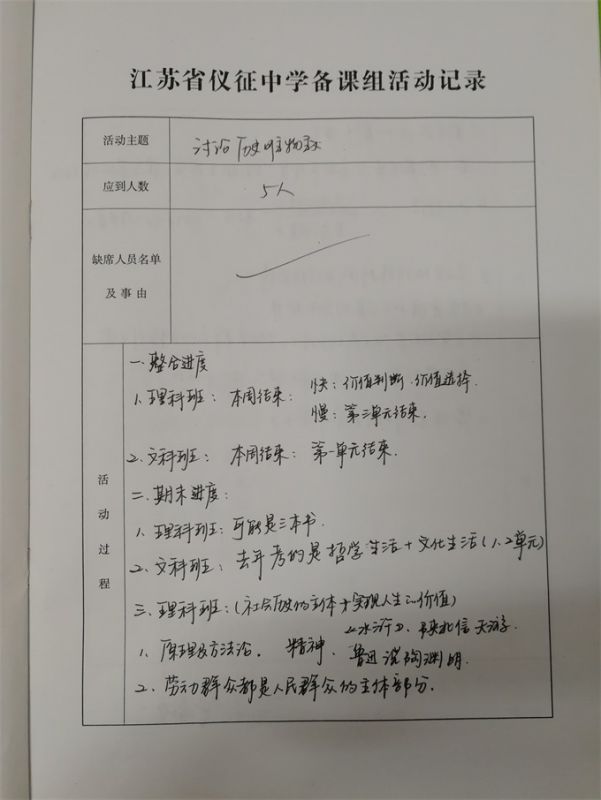 江苏省仪征中学备课组活动记录
活动主题
讨论历史唯物主义
应到人数
5人
缺席人员名单
及事由
活动过程
一.整合进度
1.理科班：本周结束：快：价值判断.价值选择.
慢：第三单元结束.
2.文科班：本周结束：第一单元结束.
二.期末进度：
1.理科班：可能是三本书.
2.文科班：去年考的是哲学生活+文化生活(1.2单元)
三.理科班：(社会历史的主体+实现人生的价值)
《水浒》.陕北信天游.
1.原理及方法论.精神.鲁迅 陶渊明.
2.劳动群众都是人民群众的主体部分.